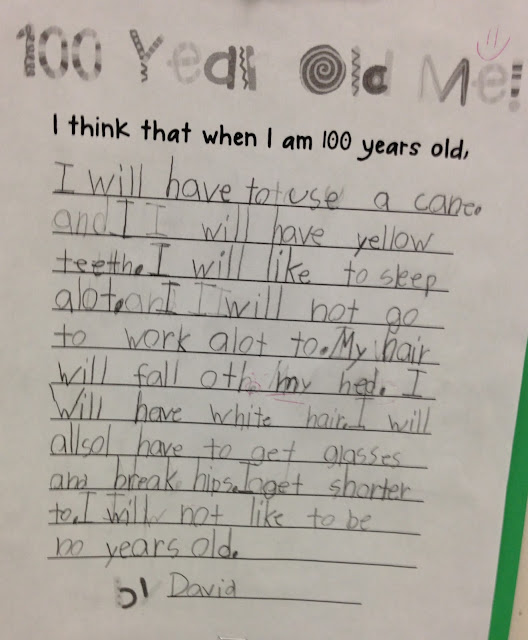 100 Year Old Me!
I think that when I am 100 years old,
I will have to use a cane.
and I I will have yellow
teeth. I will like to sleep
alot. and I I will not go
to work alot to. My hair
will fall oth my hed. I
Will have white hair. I will
allsol have to get glasses
and break hips. I get shorter
to. I will not like to be
no years old.
by David